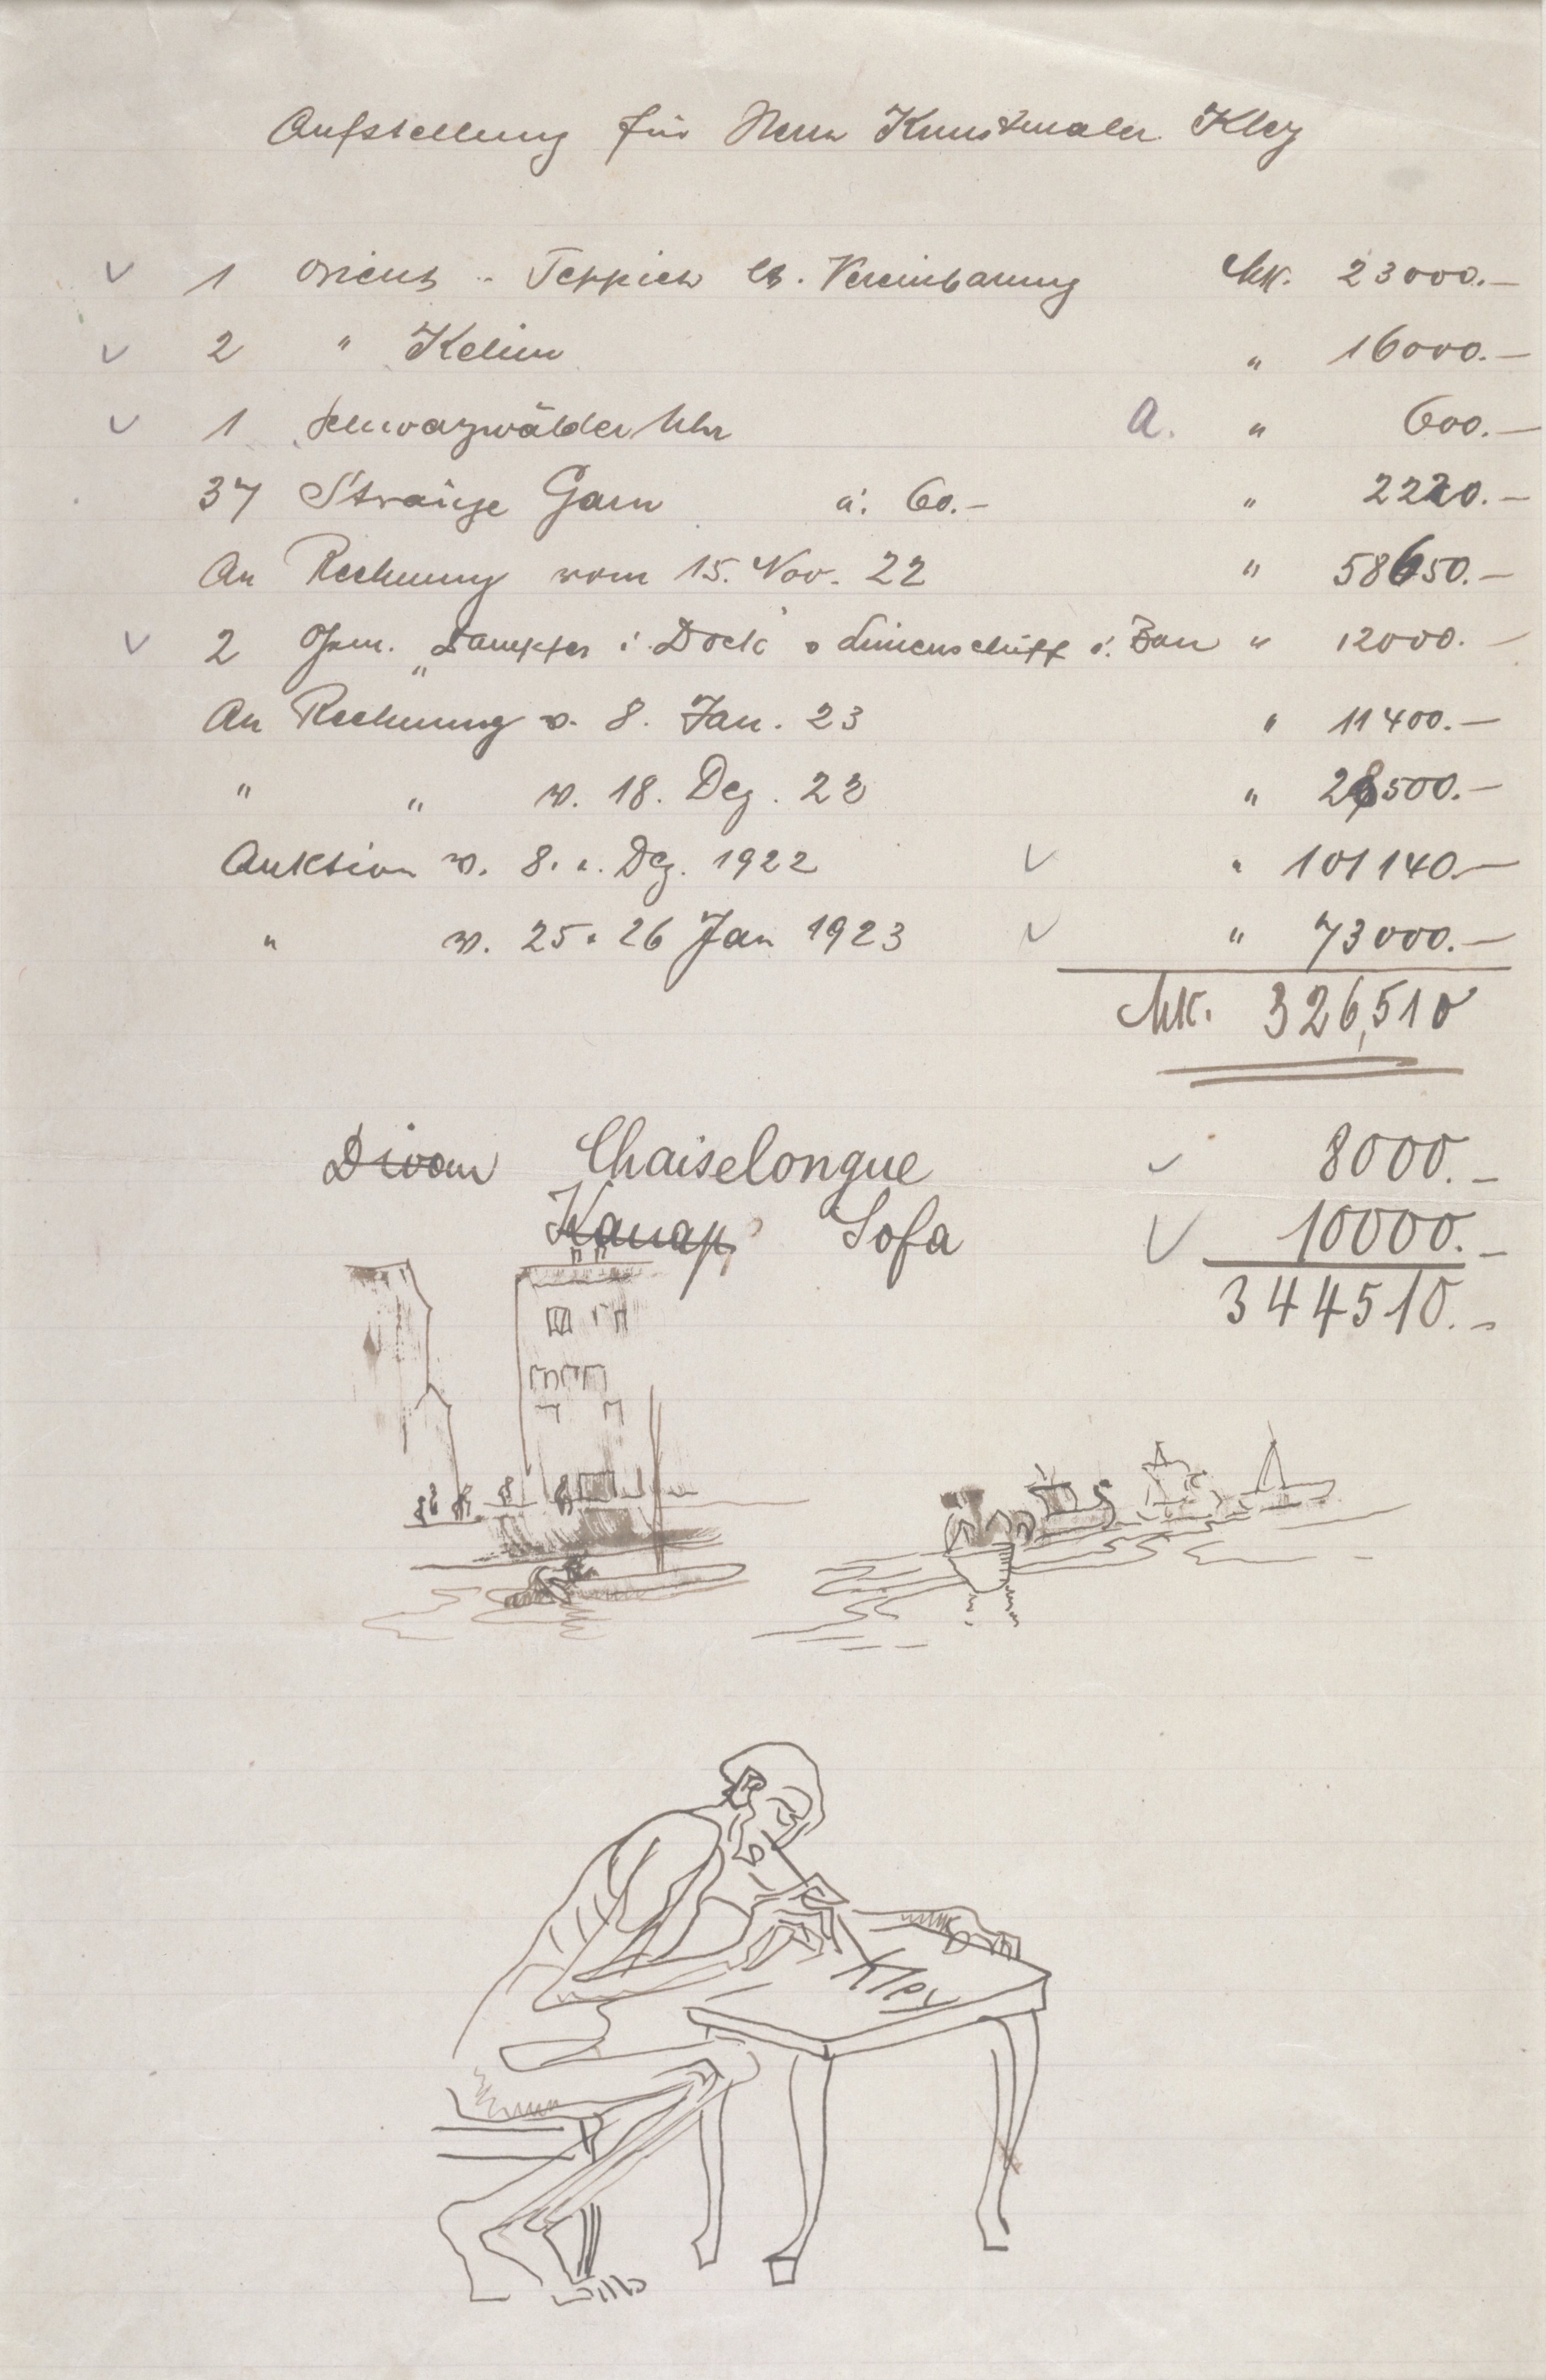 Aufstellung für Herrn Kunstmaler Kley
✓ 1 Orient - Teppich lt. Vereinbarung Mk. 23000.-
✓ 2 " Kelim " 16000.-
✓ 1 Schwarzwälder Uhr a. " 600.-
37 Stränge Garn á: 60.- " 2220.-
An Rechnung vom 15. Nov. 22 " 58650.-
✓ 2 „Dampfer i. Dock" Linienschiff i. Bau " 12000.-
An Rechnung v. 8. Jan. 23 " 11400.-
" " v. 18. Dez. 22 " 28500.-
Auktion v. 8. Dez. 1922 ✓ " 101140.-
" v. 25. 26 Jan 1923 ✓ " 73000.-
Mk. 326,510
Divan Chaiselongue ✓ 8000.-
Kanap Sofa ✓ 10000.-
344510.-
Kley